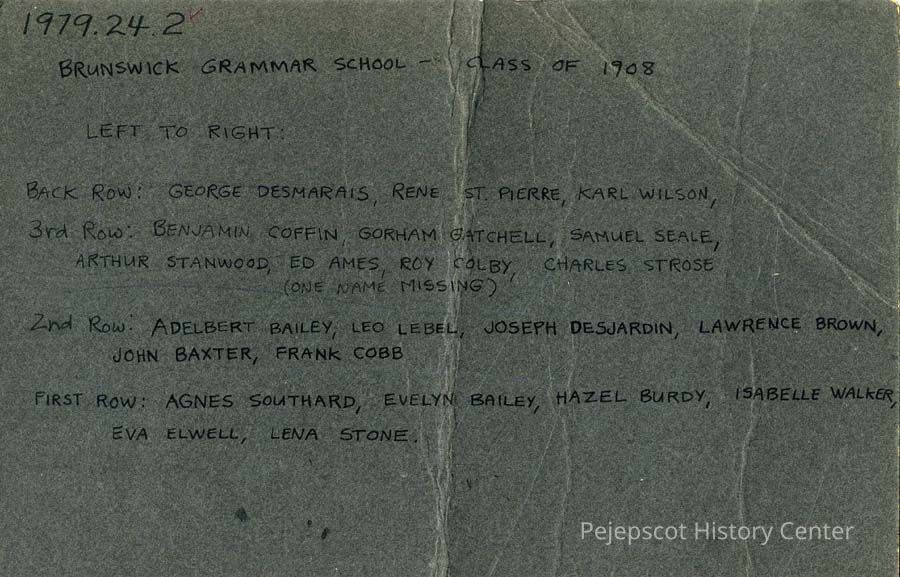 1979.24.2
BRUNSWICK GRAMMAR SCHOOL - CLASS OF 1908
LEFT TO RIGHT:
BACK ROW: GEORGE DESMARAIS, RENE ST. PIERRE, KARL WILSON,
3rd ROW: BENJAMIN COFFIN, GORHAM GATCHELL, SAMUEL SEALE,
ARTHUR STANWOOD, ED AMES, ROY COLBY, CHARLES STROSE
(ONE NAME MISSING)
2nd ROW: ADELBERT BAILEY, LEO LEBEL, JOSEPH DESJARDIN, LAWRENCE BROWN,
JOHN BAXTER, FRANK COBB
FIRST ROW: AGNES SOUTHARD, EVELYN BAILEY, HAZEL BURDY, ISABELLE WALKER,
EVA ELWELL, LENA STONE.
Pejepscot History Center